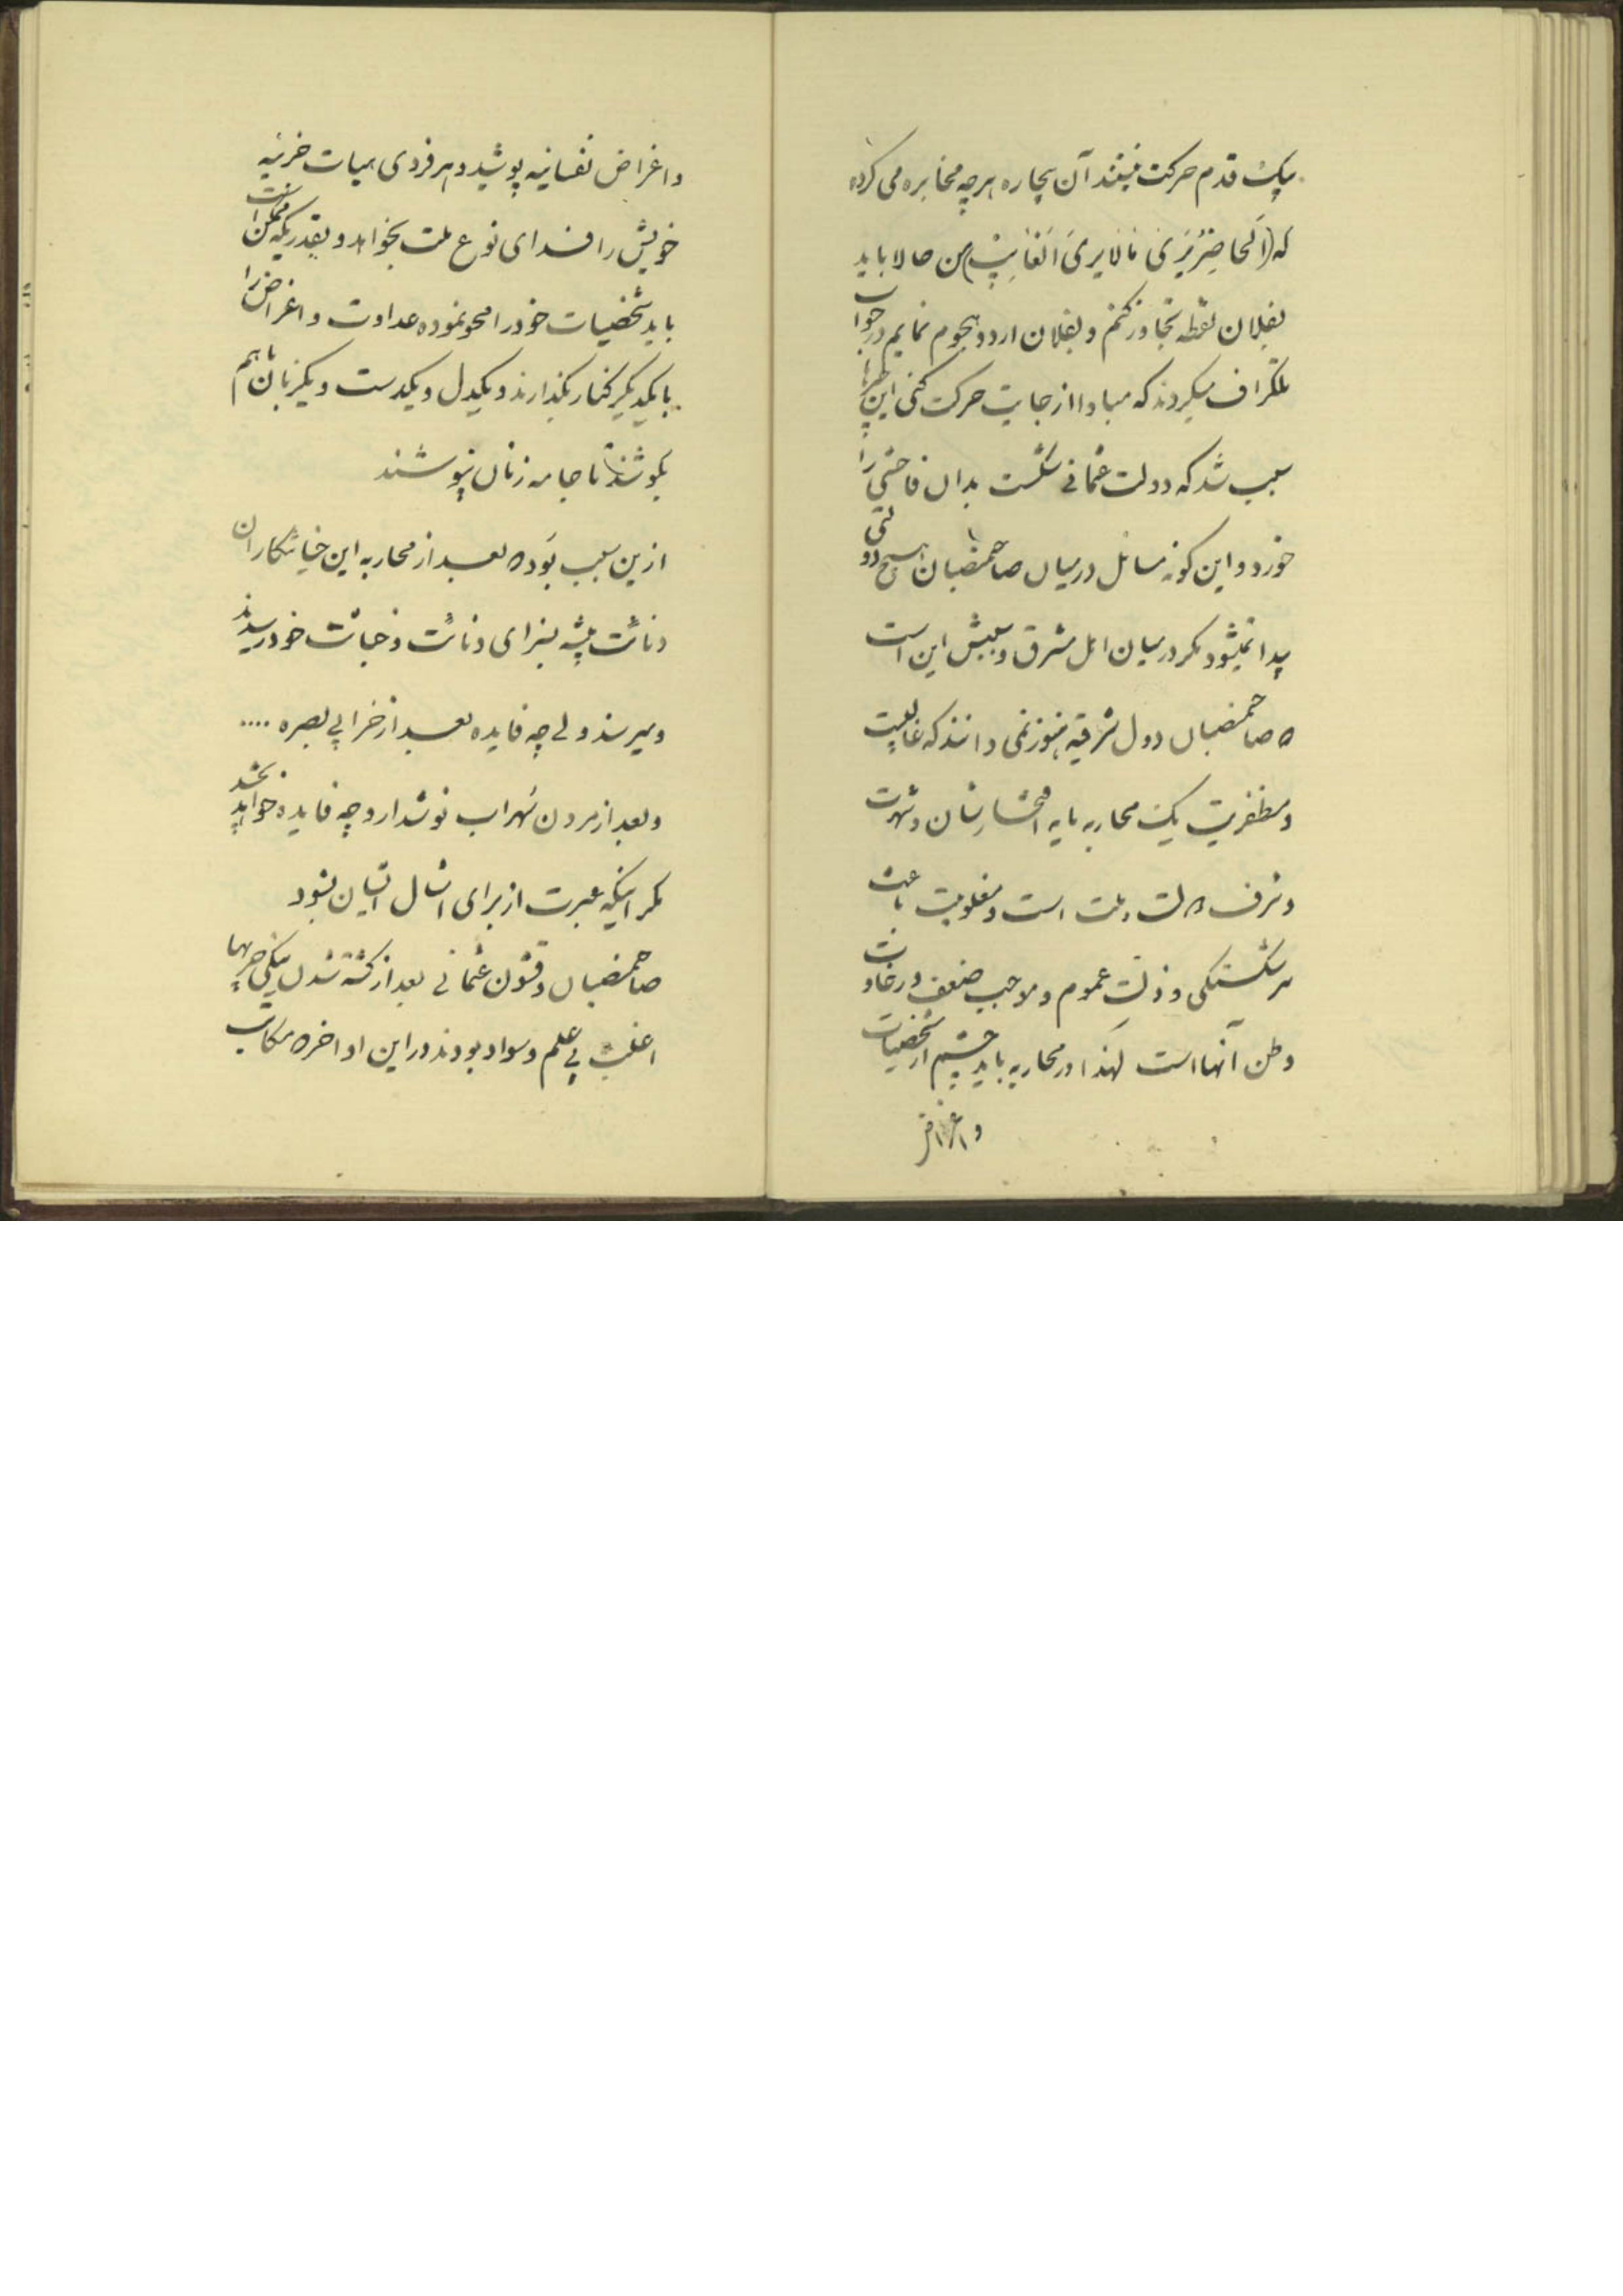 یک قدم حرکت نمیتند آن بیچاره هرچه مخابره می کرده
که (اَلحاضِرُ یَرَیٰ مٰا لاٰیَریَ اَلغٰایِبْ) من حالا باید
بفلان نقطه تجاوز کنم و بفلان اردو هجوم نمایم در جواب
تلگراف میکردند که مبادا از جایت حرکت کنی این
سبب شد که دولت عثمانی شکست بدان فاحشی را
خورد و این گونه مسائل در میان صاحمنصبان هیچ دولتی
پیدا نمیشود مگر در میان اهل مشرق و سببش این است
که صاحمنصبان دول شرقیه هنوز نمی دانند که غالبیت
و مظفریت یک محاربه مایه افتخار شان و شهرت
و شرف دولت و ملت است و مغلوبیت باعث
سرشکستگی و ذلت عموم و موجب ضعف و رخاوت
وطن آنها است لهذا در محاربه باید چشم از شخصیات
و اغراض
و اغراض نفسانیه پوشید و هر فردی هیات خزینه
خویش را فدای نوع ملت بخواهد و بقدریکه ممکن است
باید شخصیات خود را محو نموده عداوت و اغراض را
با یکدیگر کنار بگذارند و یکدل و یکدست و یکزبان باهم
بکوشند تا جامه زنان نپوشند
ازین سبب بود که بعد از محاربه این خیانتکاران
دنائت پیشه بسزای دنائت و خباثت خود رسیدند
و میرسند ولی چه فایده بعد از خرابی بصره ....
و بعد از مردن سُهراب نوشدارو چه فایده خواهد بخشد
مگر اینکه عبرت از برای امثال ایشان بشود
صاحمنصبان و قشون عثمانی بعد از کشته شدن ینگی چریها
اغلب بی علم و سواد بودند در این اواخر که مکاتب